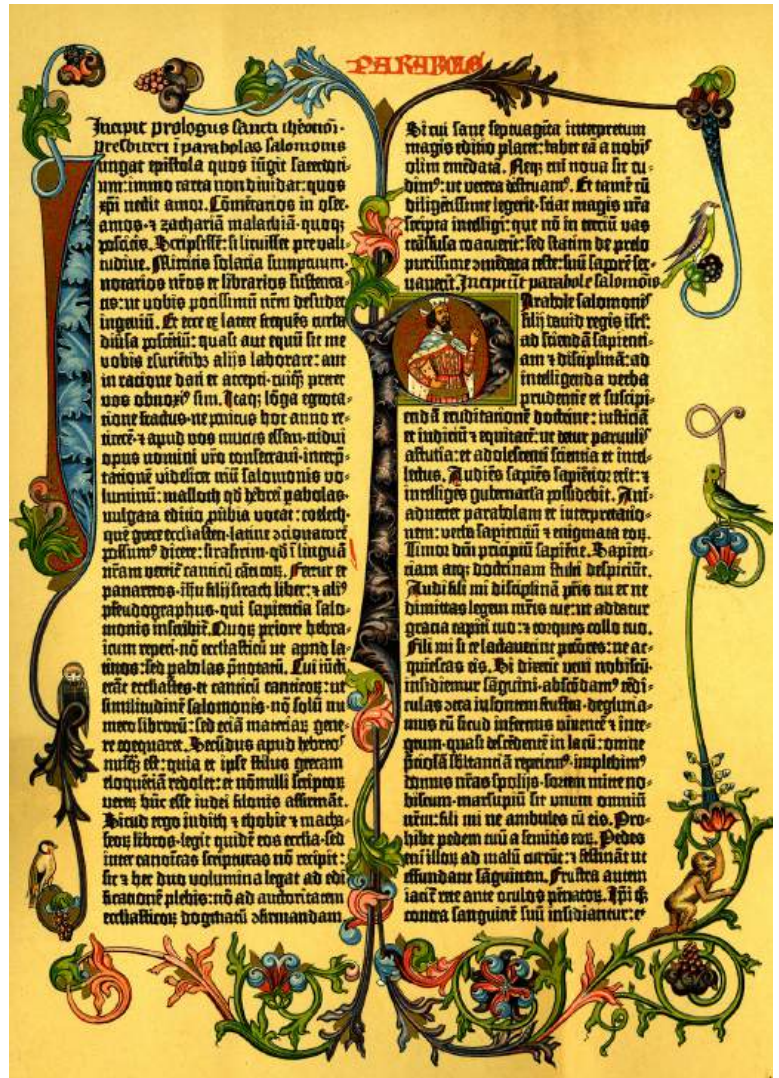 PARABOLE
Incipit prologus sancti iheronimi
presbiteri ī parabolas salomonis
Iungat epistola quos iūgit sacerdoti-
um: immo carta non diuidat: quos
xp̄i nectit amor. Cōmētarios in osee.
amos. ⁊ zachariā malachiā. quoqꝫ
poscitis. Scripsissē: si licuisset pre vali-
tudine. Mittitis solacia sumptuum.
notarios nr̄os et librarios sustenta-
tis: ut vobis potissimū nr̄m desudet
ingeniū. Et ecce ex latere frequēs turba
diūsa poscētiū: quasi aut equū sit me
vobis esuriētibꝫ alijs laborare: aut
in racione dati et accepti. cuiqꝫ preter
vos obnoxiꝰ sim. Itaqꝫ lōga egrota-
tione fractus. ne penitus hoc anno re-
ticerē. ⁊ apud vos mutus essem. tridui
opus nomini vr̄o consecraui. interp̄-
tationē videlicet triū salomonis vo-
luminū: masloth qd̄ hebrei pabolas.
vulgata editio ꝓuūbia vocat: coeleth.
quē grece ecclesiasten. latine ꝯcionatorē
possumꝰ dicere: sirasirim. qd̄ ī linguā
nr̄am vertit̄ canticū cāticoꝝ. Fertur et
panaretos. ihū filij sirach liber: ⁊ aliꝰ
pseudographus. qui sapientia salo-
monis inscribit̄. Quoꝝ priore hebra-
icum repperi. nō ecclesiasticū ut apud la-
tinos: sed pabolas p̄notatū. Cui iūcti
erāt ecclesiastes. et canticū canticoꝝ: ut
similitudinē salomonis. nō solū nu-
mero librorū: sed etiā materiaꝝ gene-
re coequaret. Secūdus apud hebreoꝰ
nusqꝫ est: quia et ipse stilus grecam
eloquētiā redolet: et nōnulli scriptoꝝ
veteꝝ hūc esse iudei filonis affirmāt.
Sicud ergo iudith ⁊ thobie ⁊ macha-
beoꝝ libros. legit quidē eos ecclesia. sed
inter canonicas scripturas nō recipit:
sic ⁊ hec duo volumina legat ad edi-
ficationē plebis: nō ad auctoritatem
ecclesiasticoꝝ dogmatū ꝯfirmandam.
Si cui sane septuaginta interpretum
magis editio placet: habet eā a nobis
olim emēdatā. Neqꝫ enī noua sic cu-
dimꝰ: ut vetera destruamꝰ. Et tamē cū
diligētissime legerit. sciat magis nr̄a
scripta intelligi: que nō in terciū vas
trāsfusa coacuerit: sed statim de prelo
purissime ꝯmēdata teste: suū saporē ser-
uauerit. Incipiūt parabole salomōis
Parabole salomonis
filij dauid regis isrl̄:
ad sciendā sapienti-
am ⁊ disciplinā: ad
intelligenda verba
prudentie et suscipi-
endā eruditationē doctrine: iusticiā
et iudiciū ⁊ equitatē: ut detur paruulis
astutia: et adolescenti scientia et intel-
lectus. Audiēs sapiēs sapiētior erit: ⁊
intelligēs gubernacla possidebit. Ani-
aduertet parabolam et interpretatio-
nem: verba sapientiū ⁊ enigmata eoꝝ.
Timor dn̄i principiū sapiētie. Sapien-
tiam atqꝫ doctrinam stulti despiciūt.
Audi fili mi disciplinā pr̄is tui et ne
dimittas legem mr̄is tue: ut addatur
gracia capiti tuo: ⁊ torques collo tuo.
Fili mi si te lactauerint pctōres: ne ac-
quiescas eis. Si dixerīt veni nobiscū
insidiemur sāguini. abscōdamꝰ tēdi-
culas ꝯtra insontem frustra. deglutia-
mus eū sicud infernus viuentē ⁊ inte-
grum. quasi descēdentē in lacū: omnē
p̄ciosā sbstantiā reperiemꝰ. implebimꝰ
domus nr̄as spolijs. sortem mitte no-
biscum. marsupiū sit unum omniū
nr̄m: fili mi ne ambules cū eis. Pro-
hibe pedem tuū a semitis eoꝝ. Pedes
enī illoꝝ ad malū currūt: ⁊ festināt ut
effundant sāguinem. Frustra autem
iacit̄ rete ante oculos pēnatoꝝ. Ipi qꝫ
contra sanguinē suū insidiantur: et